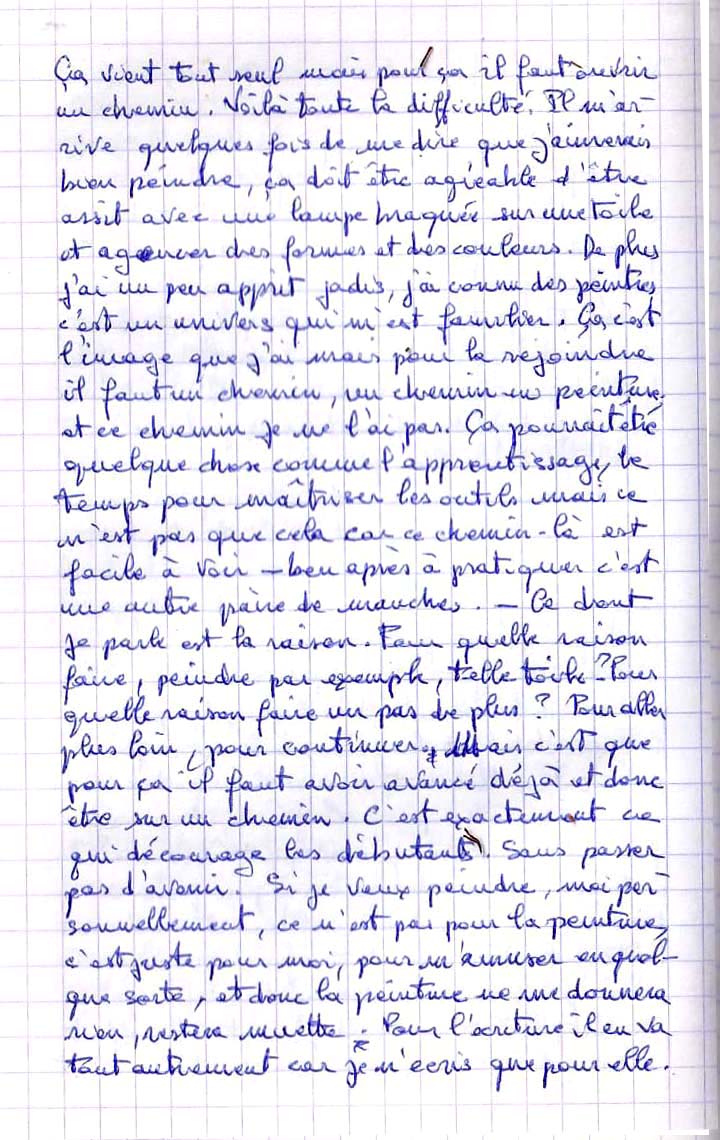 Ça vient tout seul mais pour ça il faut ouvrir
un chemin. Voilà toute la difficulté. Il m'ar-
rive quelques fois de me dire que j'aimerais
bien peindre, ça doit être agréable d'être
assit avec une lampe braquée sur une toile
et agencer des formes et des couleurs. De plus
j'ai un peu apprit jadis, j'ai connu des peintres
c'est un univers qui m'est familier. Ça c'est
l'image que j'ai mais pour la rejoindre
il faut un chemin, un chemin en peinture
et ce chemin je ne l'ai pas. Ça pourrait être
quelque chose comme l'apprentissage, le
temps pour maîtriser les outils mais ce
n'est pas que cela car ce chemin-là est
facile à voir – ben après à pratiquer c'est
une autre paire de manches. – Ce dont
je parle est la raison. Pour quelle raison
faire, peindre par exemple, telle toile? Pour
quelle raison faire un pas de plus? Pour aller
plus loin, pour continuer, Mais c'est que
pour ça il faut avoir avancé déjà et donc
être sur un chemin. C'est exactement ce
qui décourage les débutants. Sans passer
pas d'avenir. Si je veux peindre, moi per-
sonnellement, ce n'est pas pour la peinture,
c'est juste pour moi, pour m'amuser en quel-
que sorte, et donc la peinture ne me donnera
rien, restera muette. Pour l'écriture il en va
tout autrement car je n'écris que pour elle.